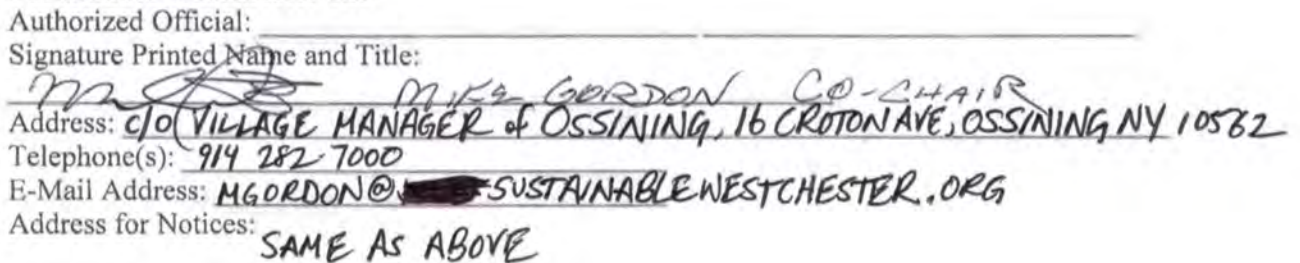 Authorized Official:
Signature Printed Name and Title:
MIKE GORDON CO-CHAIR
Address: c/o VILLAGE MANAGER of OSSINING, 16 CROTON AVE, OSSINING NY 10562
Telephone(s): 914 282 7000
E-Mail Address: MGORDON@ SUSTAINABLEWESTCHESTER.ORG
Address for Notices: SAME AS ABOVE